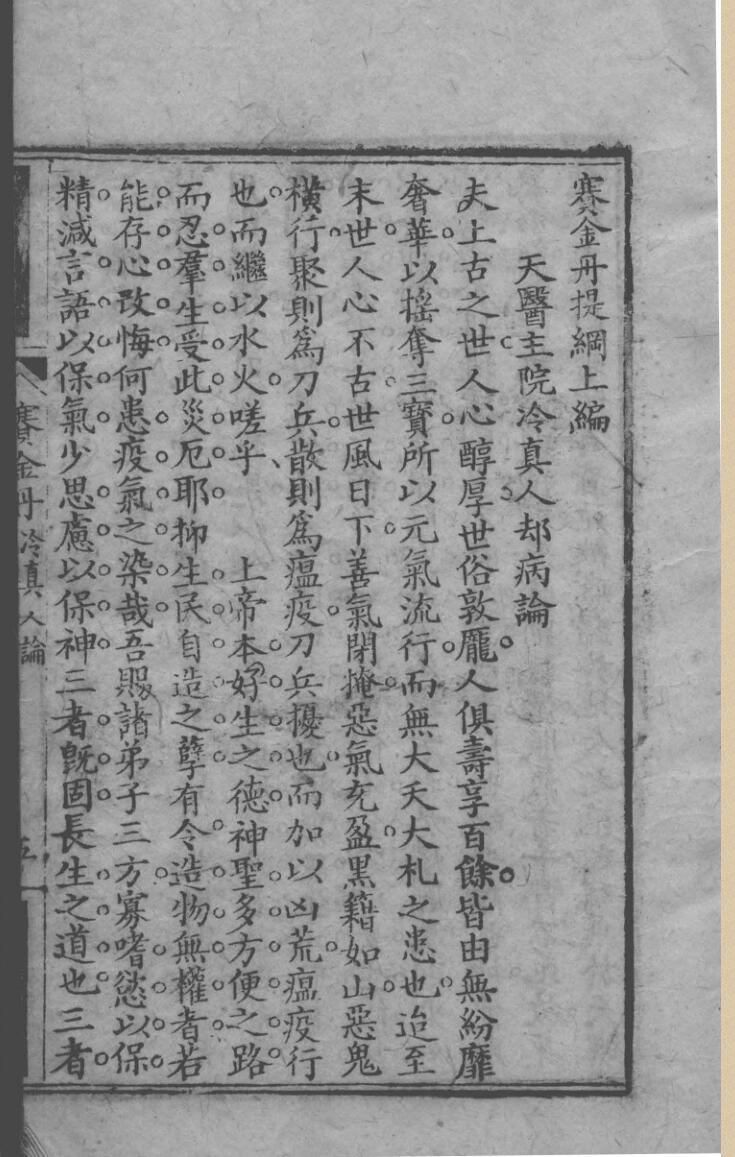 賽金丹提綱上編
天醫主院冷真人却病論
夫上古之世人心醇厚世俗敦龐人俱壽享百餘皆由無紛靡
奢華以搖奪三寶所以元氣流行而無大夭大札之患也迨至
末世人心不古世風日下善氣閉掩惡氣充盈黑籍如山惡鬼
橫行聚則爲刀兵散則爲瘟疫刀兵擾也而加以凶荒瘟疫行
也而繼以水火嗟乎　上帝本好生之德神聖多方便之路
而忍羣生受此災厄耶抑生民自造之孽有令造物無權者若
能存心改悔何患疫氣之染哉吾賜諸弟子三方寡嗜慾以保
精減言語以保氣少思慮以保神三者既固長生之道也三者
賽金丹　冷真人論　五